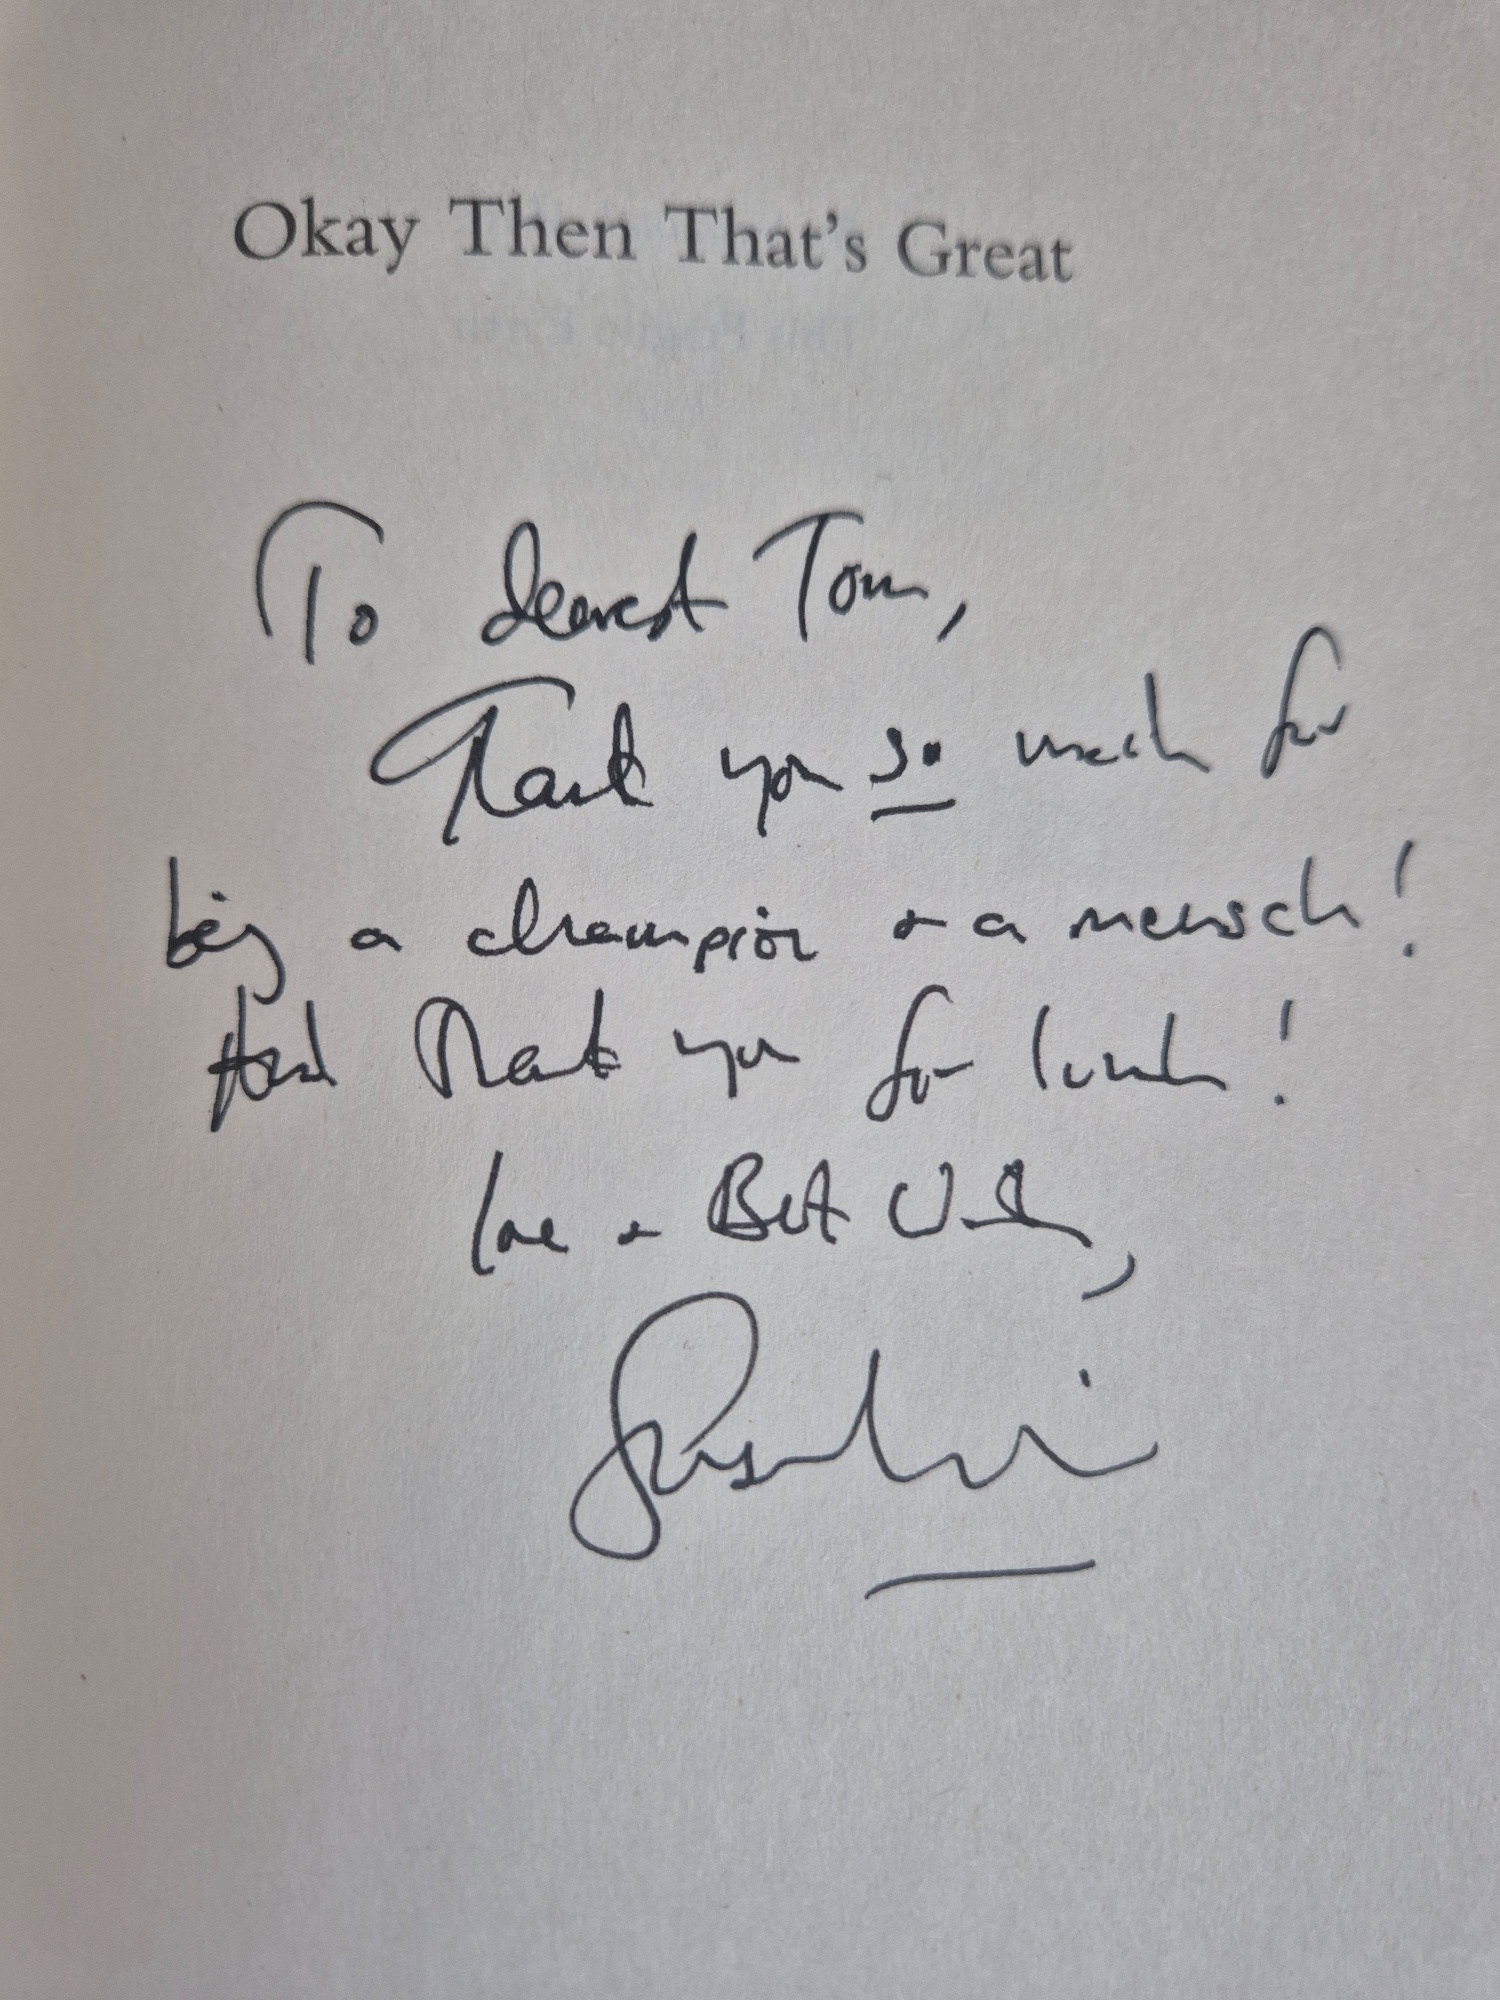 Okay Then That's Great
To dearest Tom,
Thank you so much for
being a champion + a mensch!
And Thank you for lunch!
love + Best Wishes,